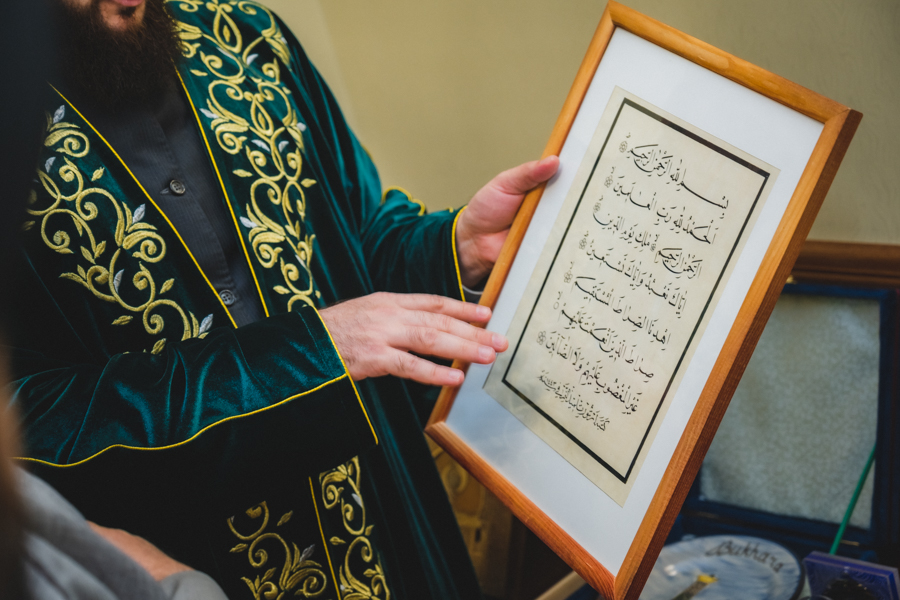 بسم الله الرحمن الرحيم
الحمد لله رب العالمين
الرحمن الرحيم ملك يوم الدين
إياك نعبد وإياك نستعين
اهدنا الصراط المستقيم
صراط الذين أنعمت عليهم
غير المغضوب عليهم ولا الضالين
Bukhara